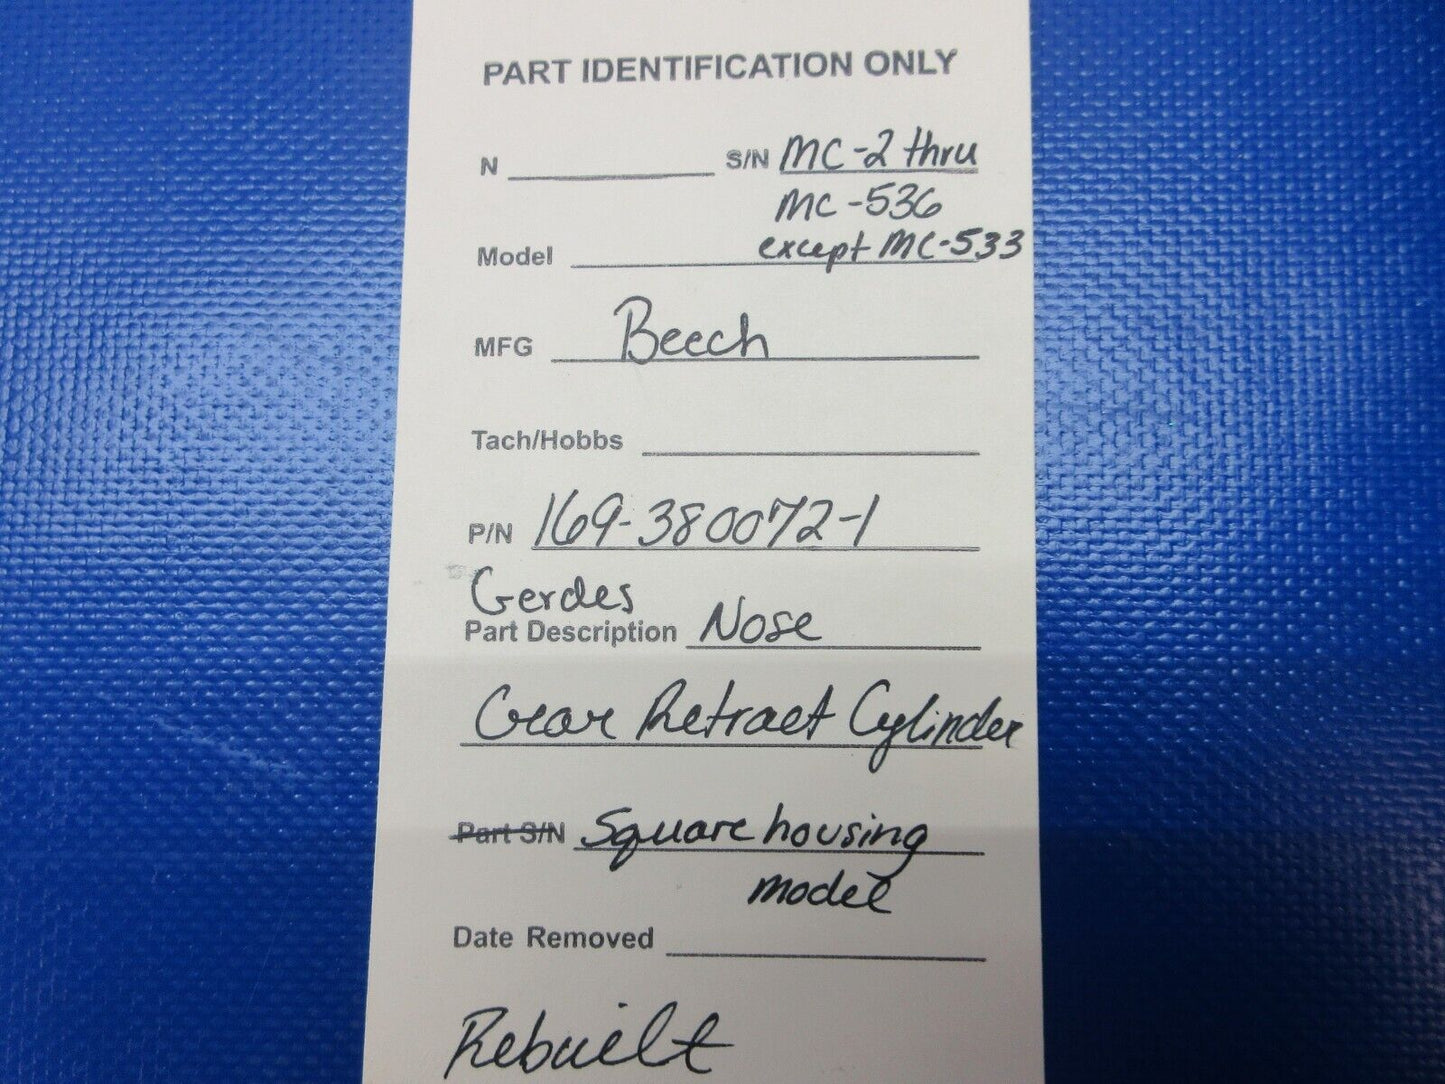 PART IDENTIFICATION ONLY
N S/N MC-2 thru
MC-536
Model except MC-533
MFG Beech
Tach/Hobbs
P/N 169-380072-1
Gerdes
Part Description Nose
Gear Retract Cylinder
Part S/N Square housing
model
Date Removed
Rebuilt